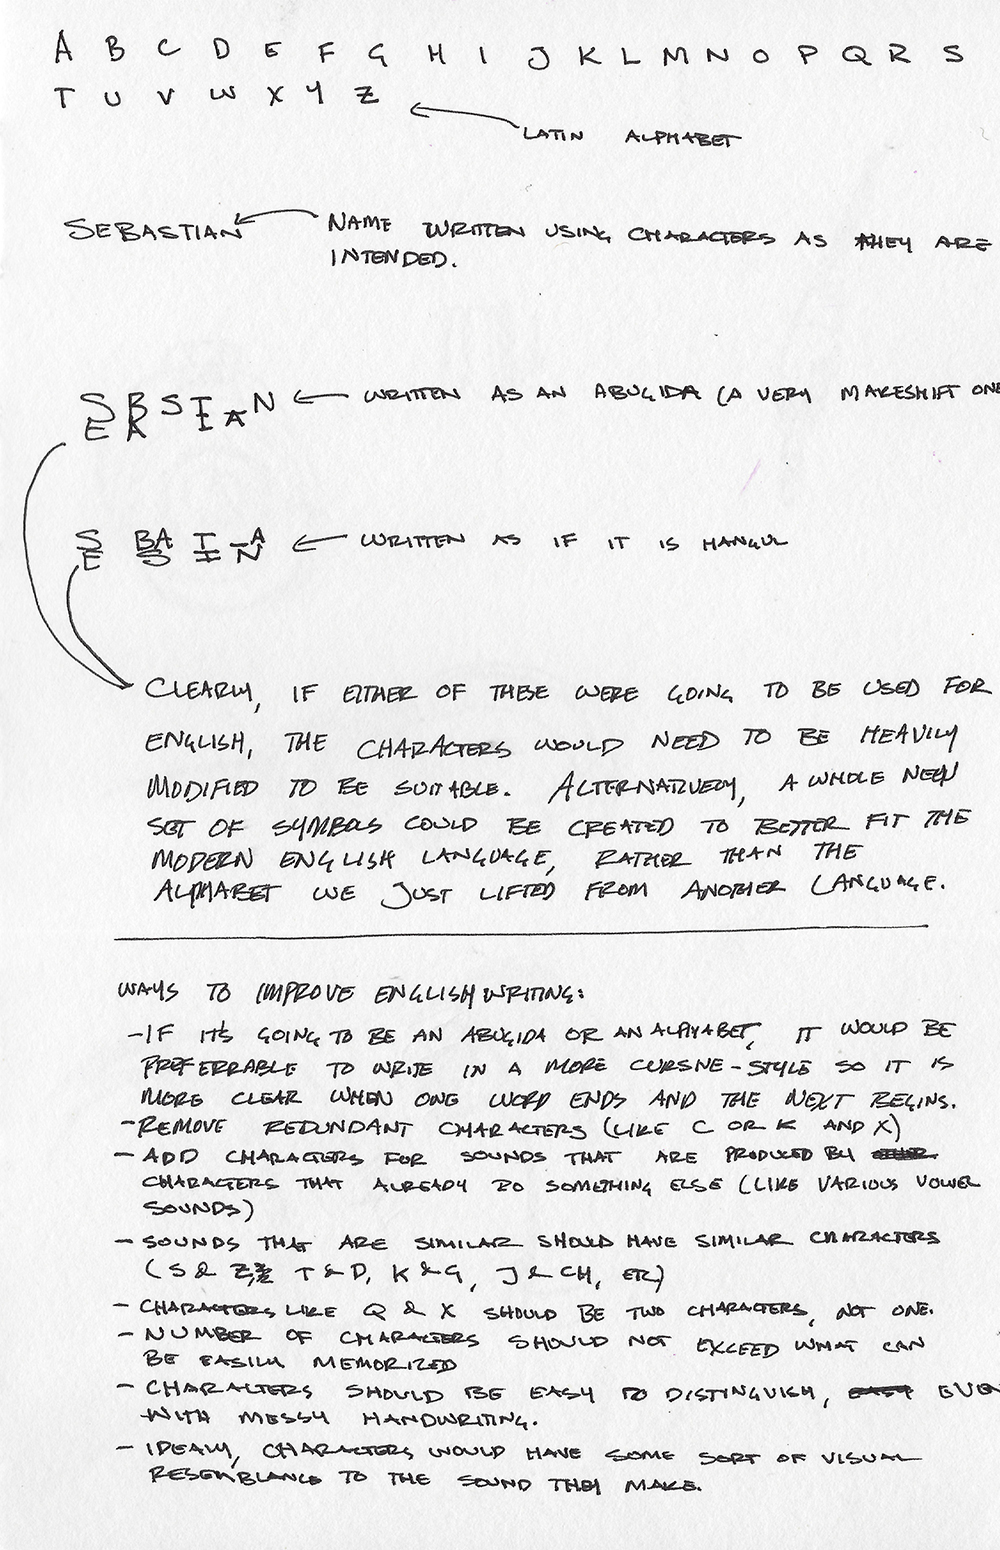 A B C D E F G H I J K L M N O P Q R S
T U V W X Y Z
LATIN ALPHABET
SEBASTIAN NAME WRITTEN USING CHARACTERS AS THEY ARE
INTENDED.
S B S T A N WRITTEN AS AN ABUGIDA (A VERY MAKESHIFT ONE
E A I
S BA T –A WRITTEN AS IF IT IS HANGUL
E S I N
CLEARLY, IF EITHER OF THESE WERE GOING TO BE USED FOR
ENGLISH, THE CHARACTERS WOULD NEED TO BE HEAVILY
MODIFIED TO BE SUITABLE. ALTERNATIVELY, A WHOLE NEW
SET OF SYMBOLS COULD BE CREATED TO BETTER FIT THE
MODERN ENGLISH LANGUAGE, RATHER THAN THE
ALPHABET WE JUST LIFTED FROM ANOTHER LANGUAGE.
WAYS TO IMPROVE ENGLISH WRITING:
-IF IT'S GOING TO BE AN ABUGIDA OR AN ALPHABET, IT WOULD BE
PREFERRABLE TO WRITE IN A MORE CURSIVE-STYLE SO IT IS
MORE CLEAR WHEN ONE WORD ENDS AND THE NEXT BEGINS.
-REMOVE REDUNDANT CHARACTERS (LIKE C OR K AND X)
- ADD CHARACTERS FOR SOUNDS THAT ARE PRODUCED BY
CHARACTERS THAT ALREADY DO SOMETHING ELSE (LIKE VARIOUS VOWEL
SOUNDS)
- SOUNDS THAT ARE SIMILAR SHOULD HAVE SIMILAR CHARACTERS
(S & Z, T & D, K & G, J & CH, ETC)
- CHARACTERS LIKE Q & X SHOULD BE TWO CHARACTERS, NOT ONE.
- NUMBER OF CHARACTERS SHOULD NOT EXCEED WHAT CAN
BE EASILY MEMORIZED
- CHARACTERS SHOULD BE EASY TO DISTINGUISH, EVEN
WITH MESSY HANDWRITING.
- IDEALY, CHARACTERS WOULD HAVE SOME SORT OF VISUAL
RESEMBLANCE TO THE SOUND THEY MAKE.